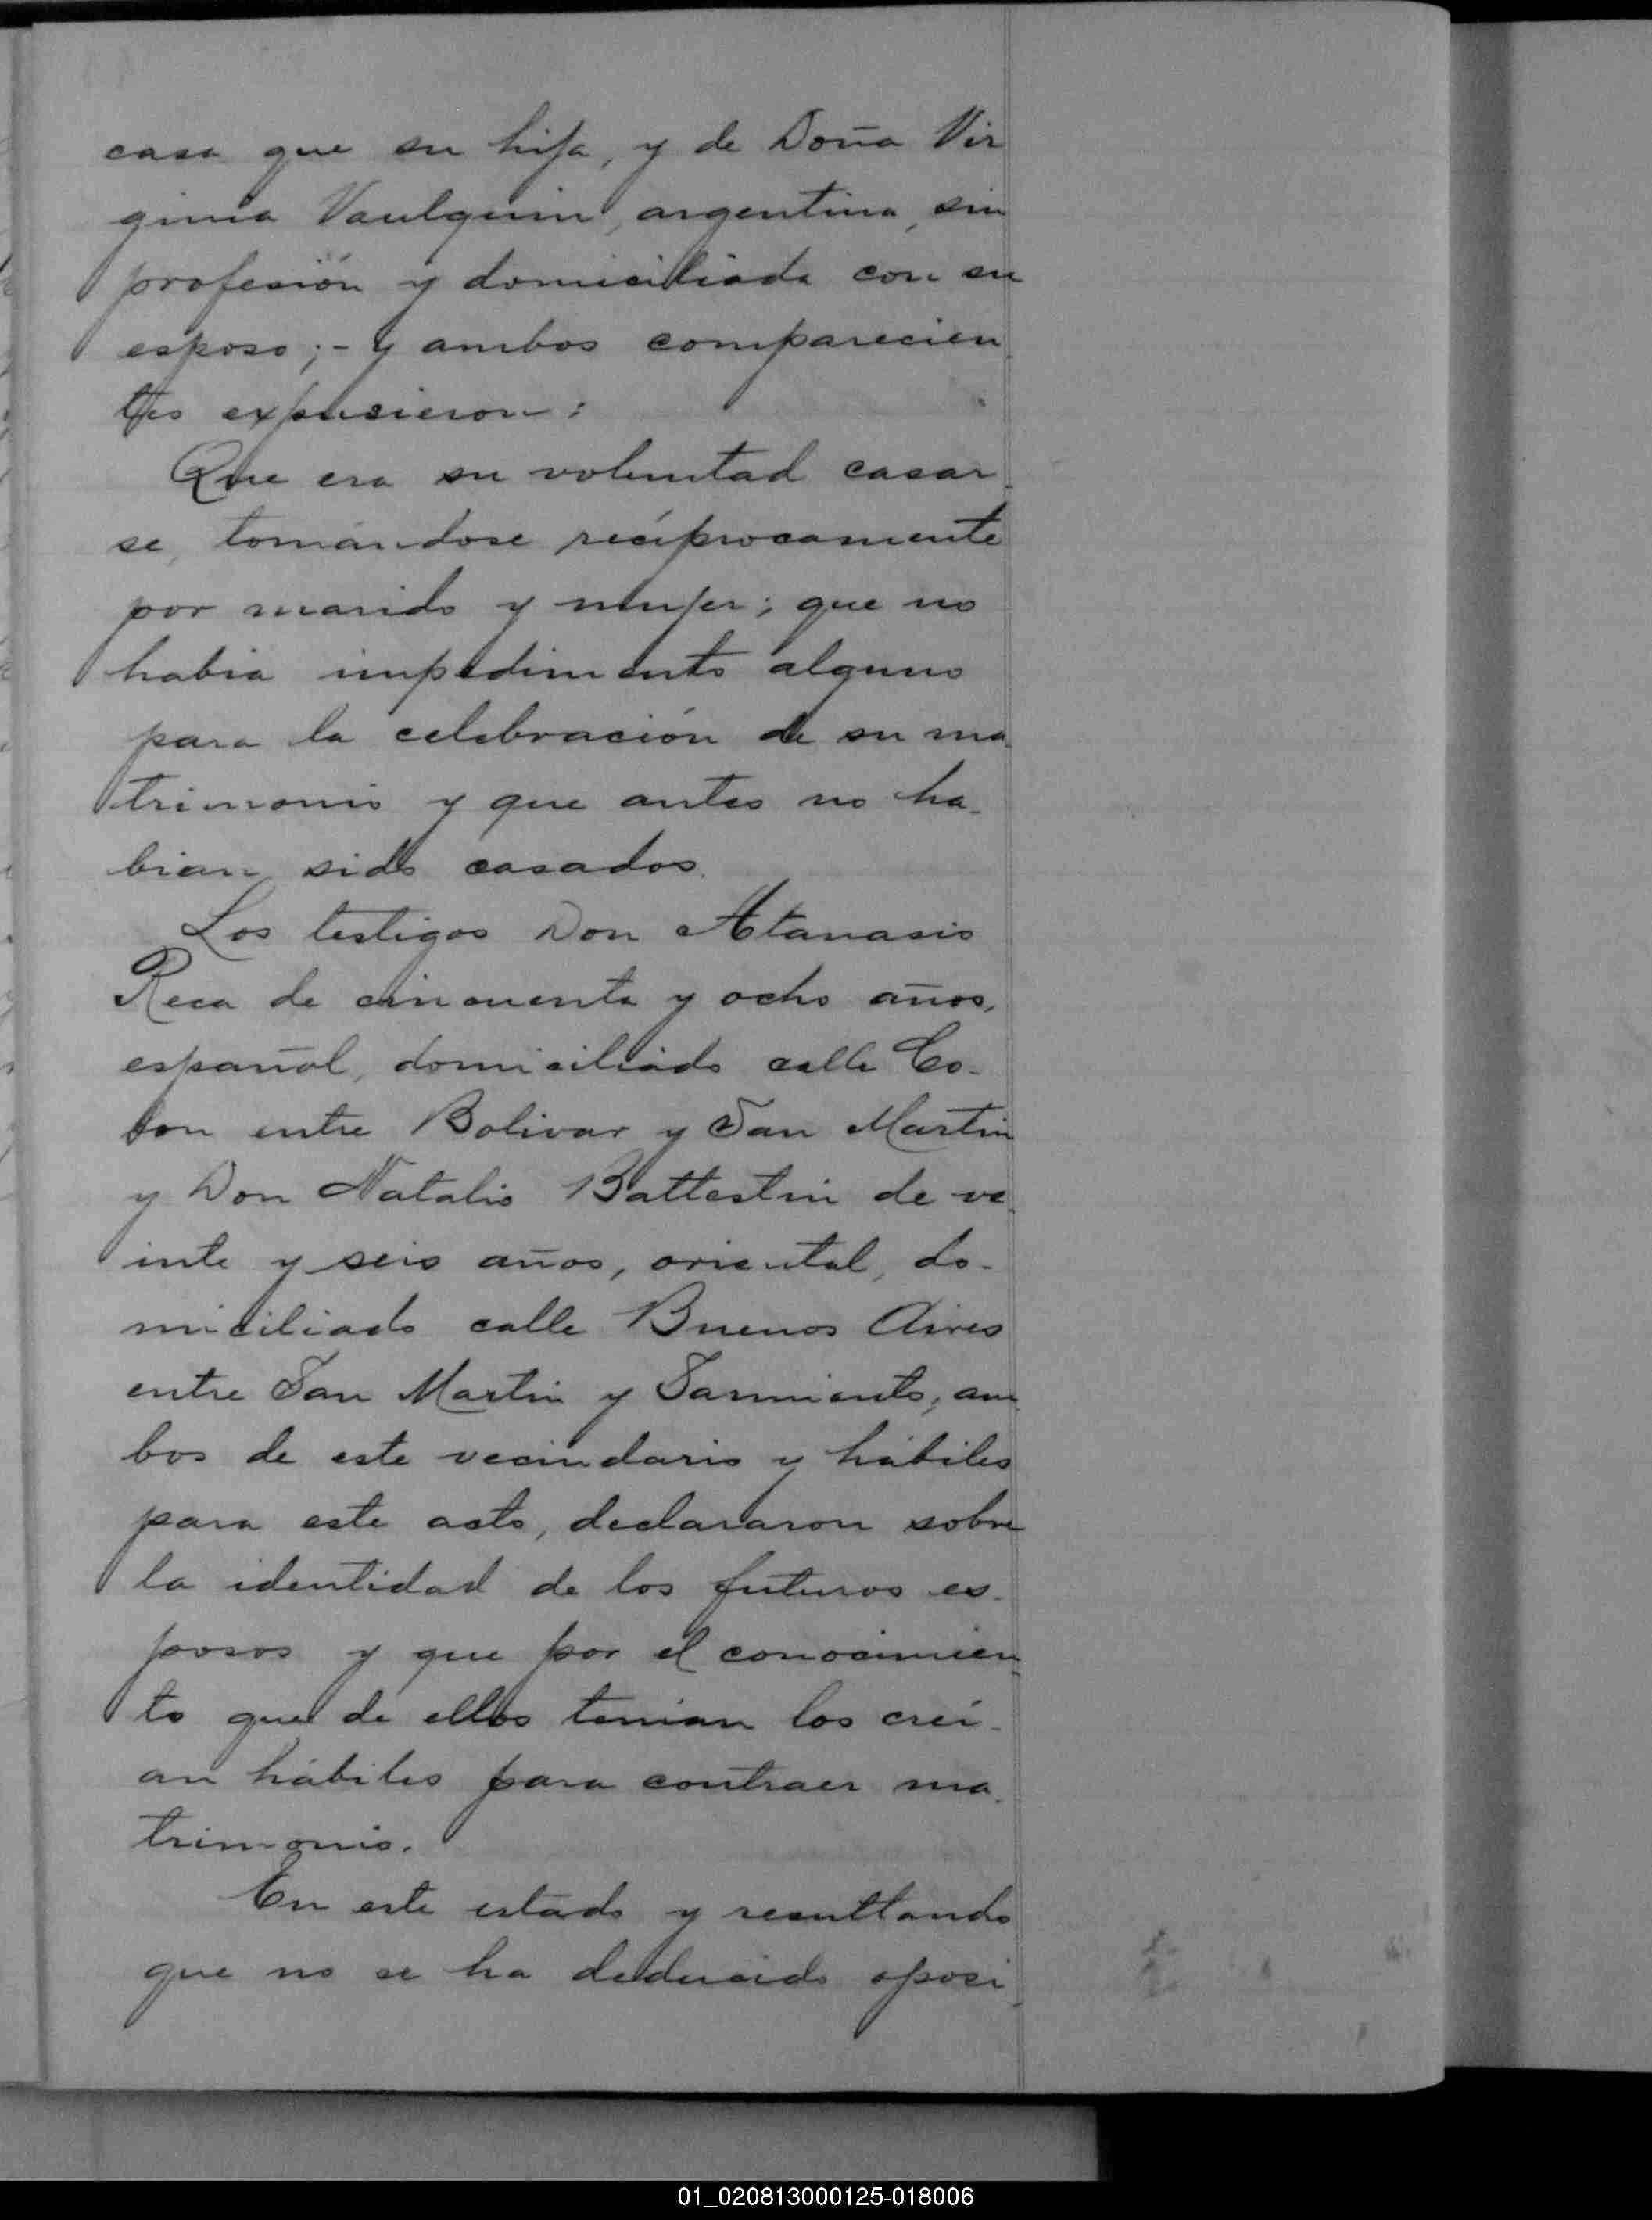 casa que su hija, y de Doña Vir
ginia Vaulquin, argentina, sin
profesión y domiciliada con su
esposo;- y ambos comparecien
tes expusieron:
Que era su voluntad casar
se, tomándose recíprocamente
por marido y mujer; que no
habia impedimento alguno
para la celebración de su ma
trimonio y que antes no ha-
bian sido casados.
Los testigos Don Atanasio
Reca de cincuenta y ocho años,
español, domiciliado calle Co-
lon entre Bolivar y San Martin
y Don Natalio Battestin de ve
inte y seis años, oriental, do-
miciliado calle Buenos Aires
entre San Martin y Sarmiento, am
bos de este vecindario y hábiles
para este acto, declararon sobre
la identidad de los futuros es-
posos y que por el conocimien
to que de ellos tenian los creí-
an hábiles para contraer ma
trimonio.
En este estado y resultando
que no se ha deducido oposi
01_020813000125-018006